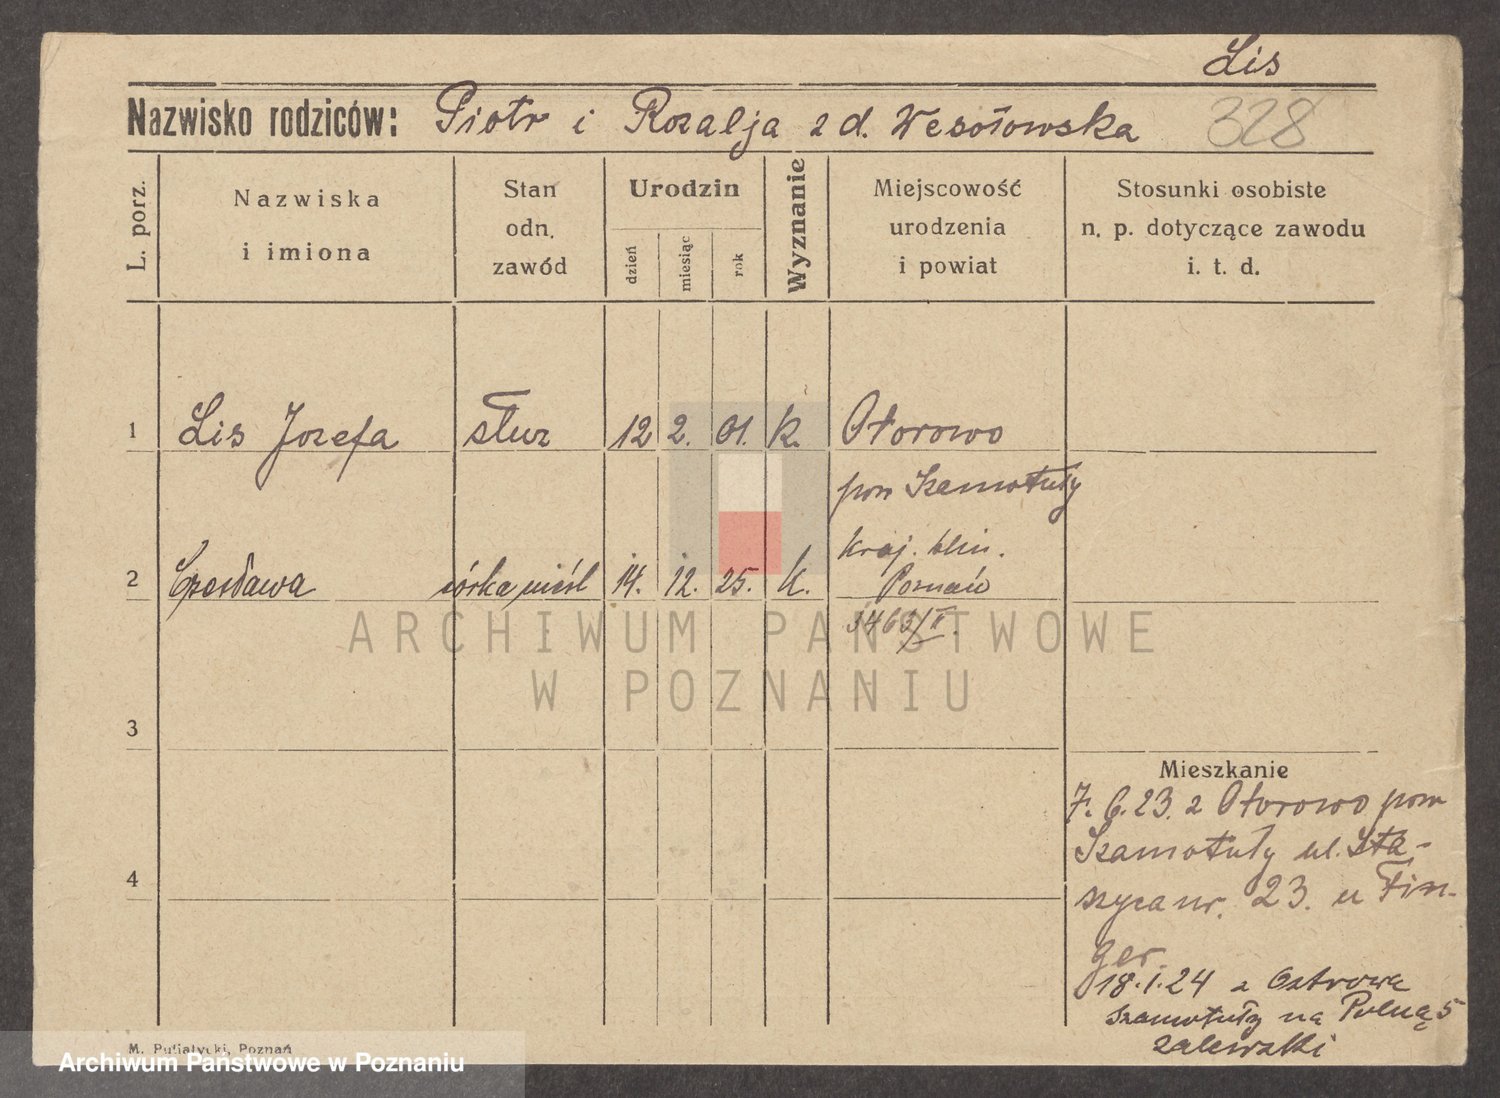 Lis
Nazwisko rodziców: Piotr i Rozalja z d. Wesołowska 328
L. porz.
Nazwiska
i imiona
Stan
odn.
zawód
Urodzin
dzień
miesiąc
rok
Wyznanie
Miejscowość
urodzenia
i powiat
Stosunki osobiste
n. p. dotyczące zawodu
i. t. d.
1 Lis Jozefa służ 12 2. 01. k. Otorowo
pow Szamotuły
kraj. klin.
2 Czesława córka nieśl 14. 12. 25. k. Poznań
3463/II.
ARCHIWUM PAŃSTWOWE
W POZNANIU
3
Mieszkanie
7. 6. 23. z Otorowo pow
Szamotuły ul. Sta-
4
szyca nr. 23. u Fin-
ger.
18. 1. 24 z Ostrowa
Szamotuły na Polną 5
Zalewski
M. Putiatycki, Poznań
Archiwum Państwowe w Poznaniu